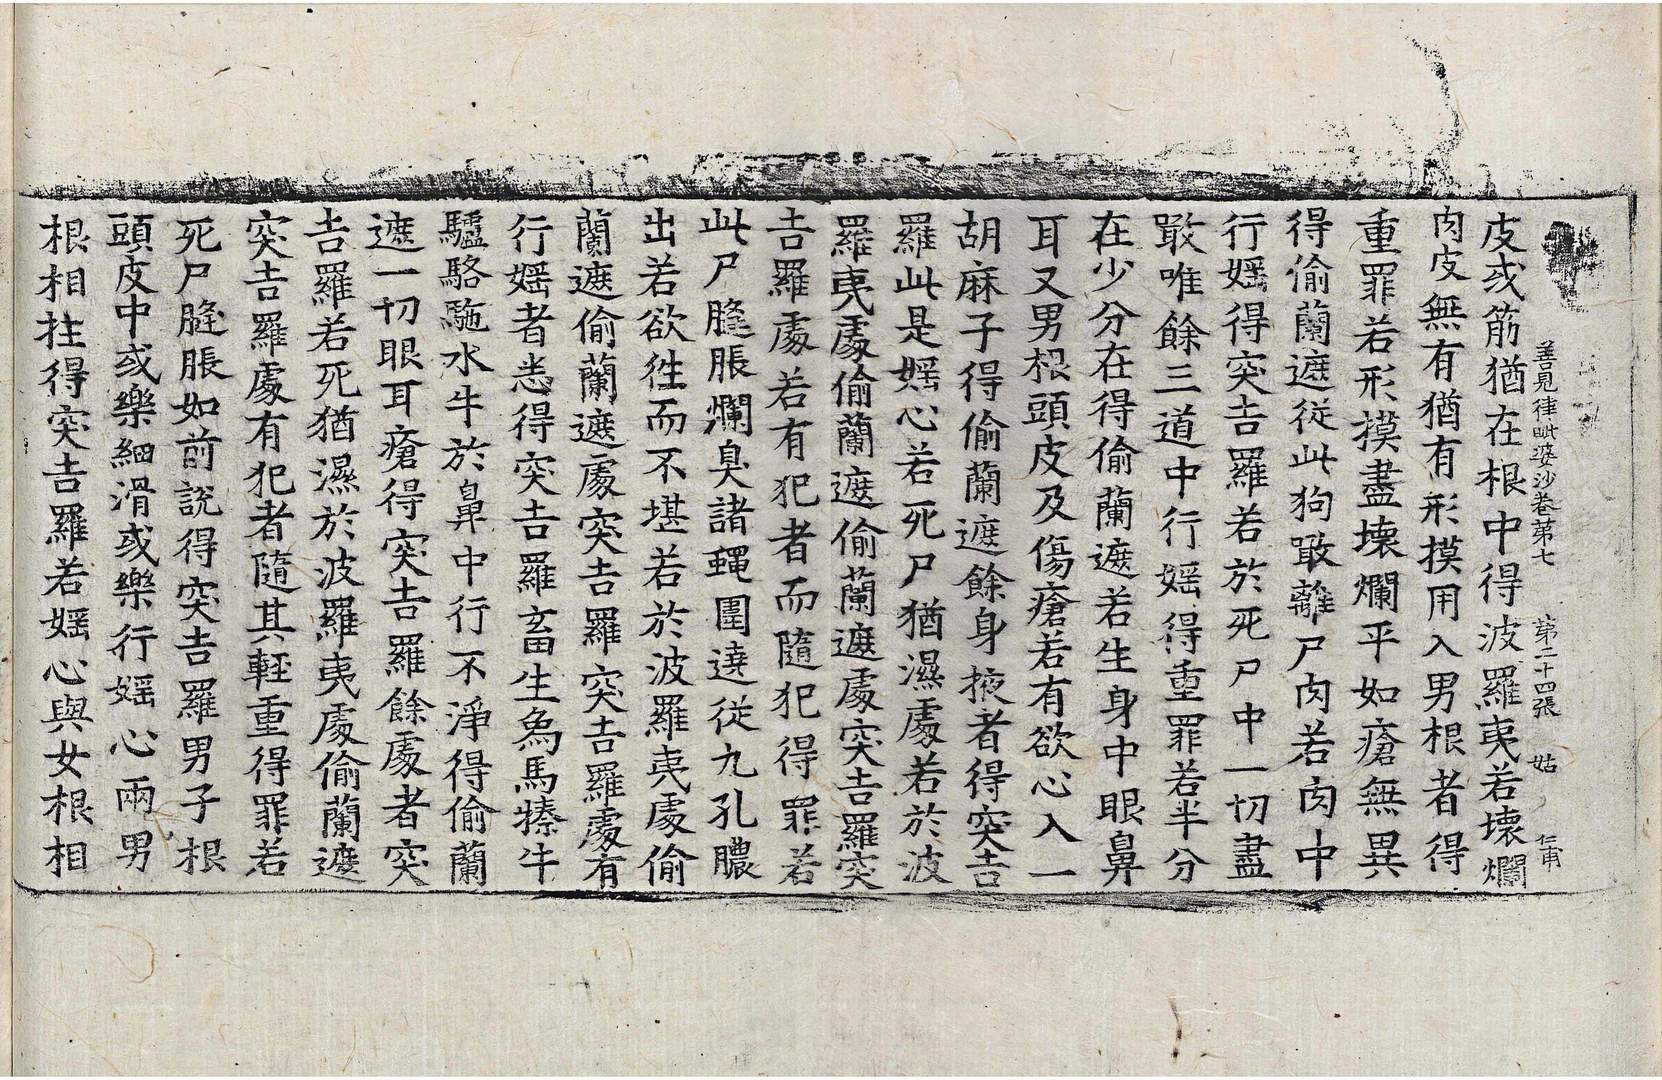 善見律毗婆沙卷第七 第二十四張 姑 仁甫
皮或筋猶在根中得波羅夷若壞爛
肉皮無有猶有形摸用入男根者得
重罪若形摸盡壞爛平如瘡無異
得偷蘭遮從此狗噉離尸肉若肉中
行婬得突吉羅若於死尸中一切盡
噉唯餘三道中行婬得重罪若半分
在少分在得偷蘭遮若生身中眼鼻
耳又男根頭皮及傷瘡若有欲心入一
胡麻子得偷蘭遮餘身掖者得突吉
羅此是婬心若死尸猶濕處若於波
羅夷處偷蘭遮偷蘭遮處突吉羅突
吉羅處若有犯者而隨犯得罪若
此尸膖脹爛臭諸蠅圍遶從九孔膿
出若欲徃而不堪若於波羅夷處偷
蘭遮偷蘭遮處突吉羅突吉羅處有
行婬者悉得突吉羅畜生爲馬㹀牛
驢駱駞水牛於鼻中行不淨得偷蘭
遮一切眼耳瘡得突吉羅餘處者突
吉羅若死猶濕於波羅夷處偷蘭遮
突吉羅處有犯者隨其輕重得罪若
死尸膖脹如前說得突吉羅男子根
頭皮中或樂細滑或樂行婬心兩男
根相拄得突吉羅若婬心與女根相